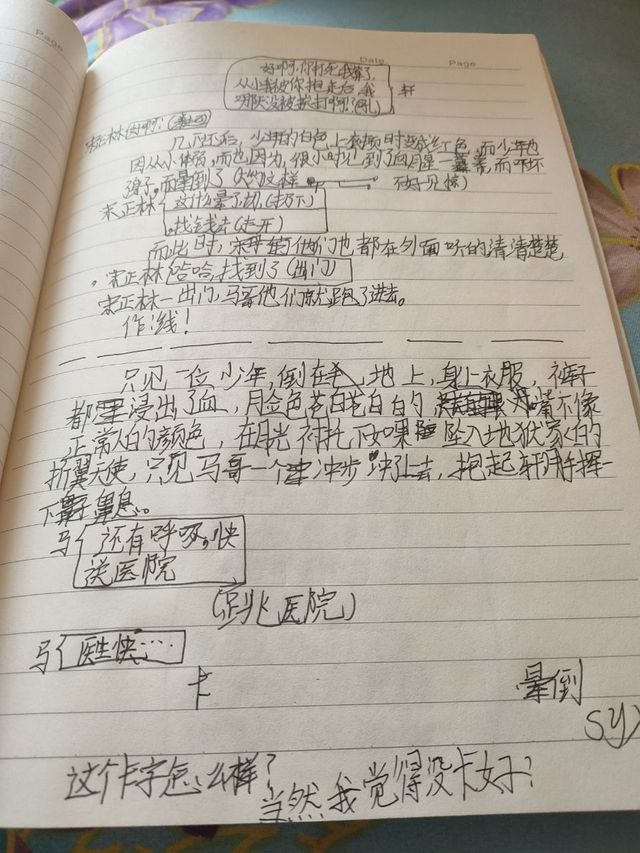 Page
Date Page
好啊,你打死我算了,
从小我被你抱走后,我
哪天没被挨打啊?(轧) 轩
宋正林
几下过后,少年的白色上衣顿时变成红色,而少年也
因从小体弱,而也因为,很小时
而晕倒了(大约这样 不好见惊)
宋正林 这什么晕了切,(打下)
找钱去(走开)
而此时,宋 他们也都在外面听的清清楚楚
宋正林 哈哈,找到了(出门)
宋正林一出门,马哥他们就跑了进去。
作线!
只见一位少年,倒在 地上,身上衣服、裤子
都 浸出了血,脸色苍白苍白的, 嘴不像
正常人的颜色,在月光衬托下如果 坠入地狱 的
折翼天使,只见马哥一个 冲步 上去,抱起轩
下 息。
马 还有呼吸,快
送医院
(跑医院)
马 医生快……
卡 晕倒
sy
这个卡字怎么样?
当然我觉得没卡好?